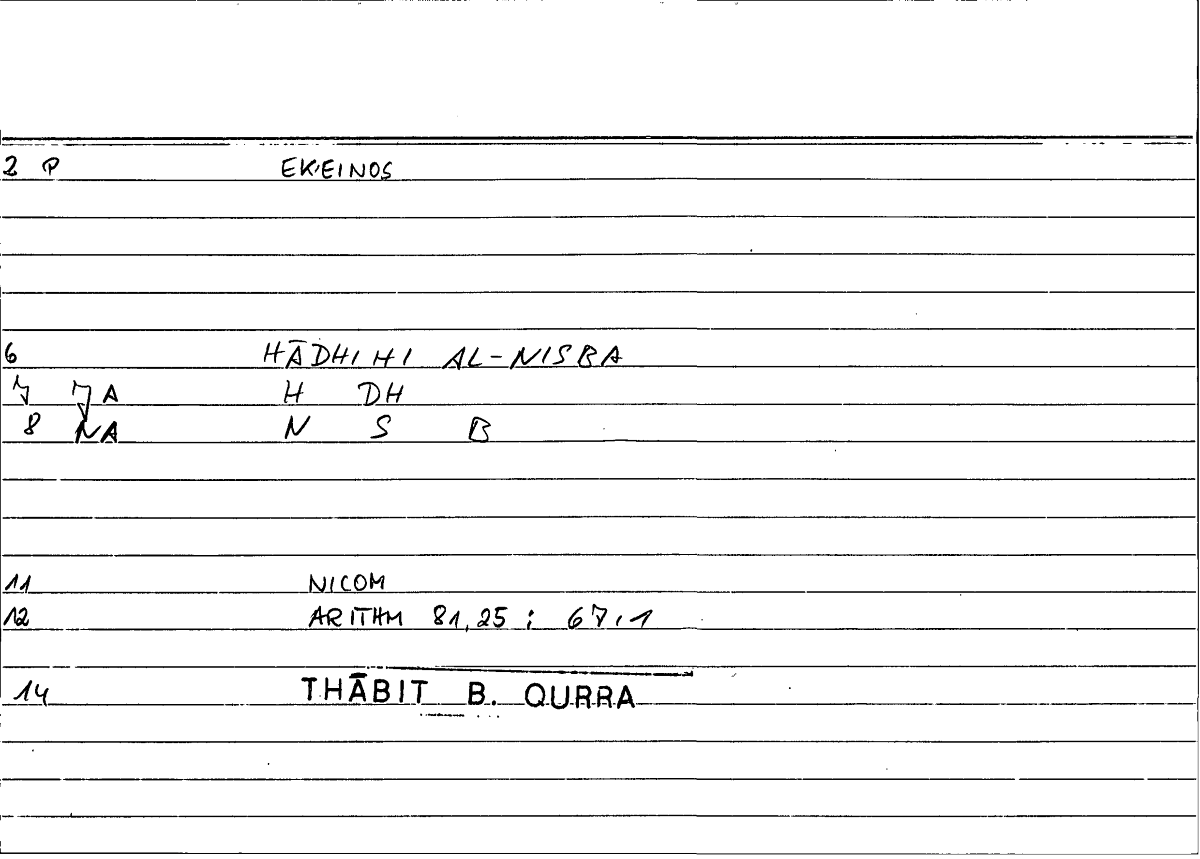 2 P EK'EINOS
6 HĀDHIHI AL-NISBA
7 7A H DH
8 NA N S B
11 NICOM
12 ARITHM 81,25 ; 67,1
14 THĀBIT B. QURRA